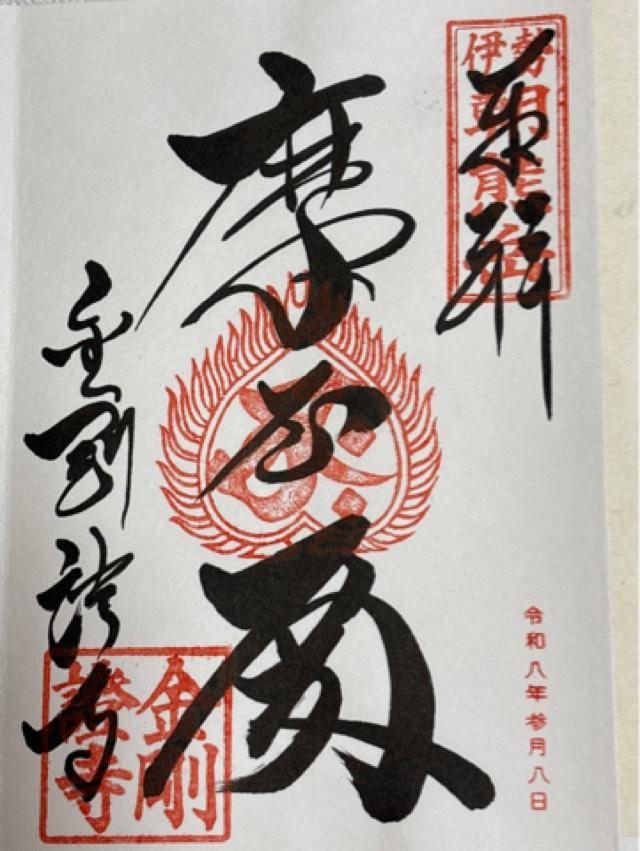 奉拝
伊勢
朝熊岳
摩尼殿
令和八年参月八日
金剛證寺
金剛
證寺